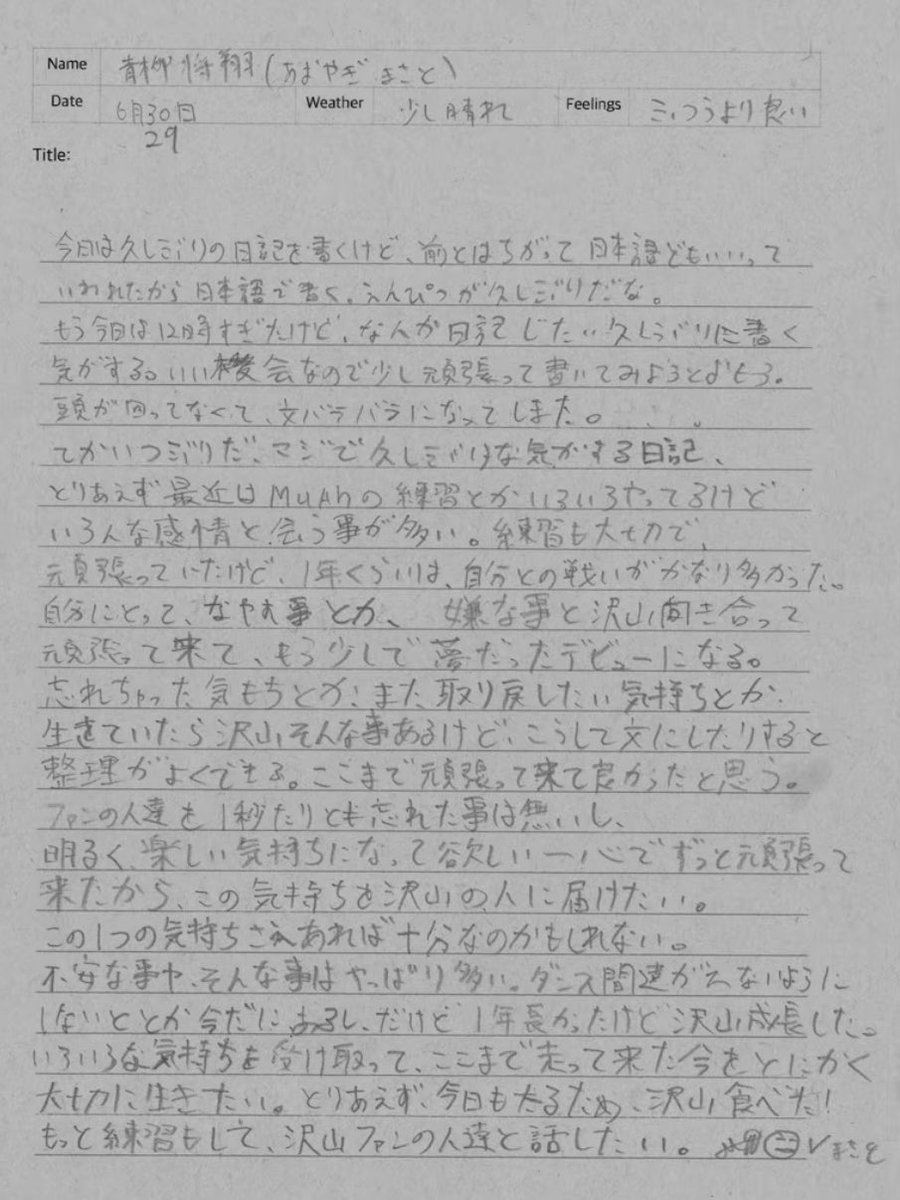 Name 青柳 将翔 (あおやぎ まさと)
Date 6月30日 Weather 少し晴れ Feelings ふつうより良い
29
Title:
今日は久しぶりの日記を書くけど、前とはちがって日本語どもいいって
いわれたから日本語で書く。えんぴつが久しぶりだな。
もう今日は12時すぎたけど、なんか日記じたい久しぶりに書く
気がする。いい機会なので少し頑張って書いてみようとおもう。
頭が回ってなくて、文バラバラになってしまた。
てかいつぶりだ、マジで久しぶりな気がする日記、
とりあえず最近はMUAhの練習とかいろいろやってるけど
いろんな感情と会う事が多い。練習も大切で、
頑張っていたけど、1年くらいは、自分との戦いがかなり多かった。
自分にとって、なやむ事とか、嫌な事と沢山向き合って
頑張って来て、もう少しで夢だったデビューになる。
忘れちゃった気もちとか、また取り戻したい気持ちとか
生きていたら沢山そんな事あるけど、こうして文にしたりすると
整理がよくできる。ここまで頑張って来て良かったと思う。
ファンの人達を1秒たりとも忘れた事は無いし、
明るく、楽しい気持ちになって欲しい一心でずっと頑張って
来たから、この気持ちを沢山の人に届けたい。
この1つの気持ちさえあれば十分なのかもしれない。
不安な事や、そんな事はやっぱり多い。ダンス間違がえないように
しないととか今だにあるし、だけど1年長かったけど沢山成長した。
いろいろな気持ちを受け取って、ここまで走って来た今をとにかく
大切に生きたい。とりあえず、今日も太るため、沢山食べた!
もっと練習もして、沢山ファンの人達と話したい。 まさと